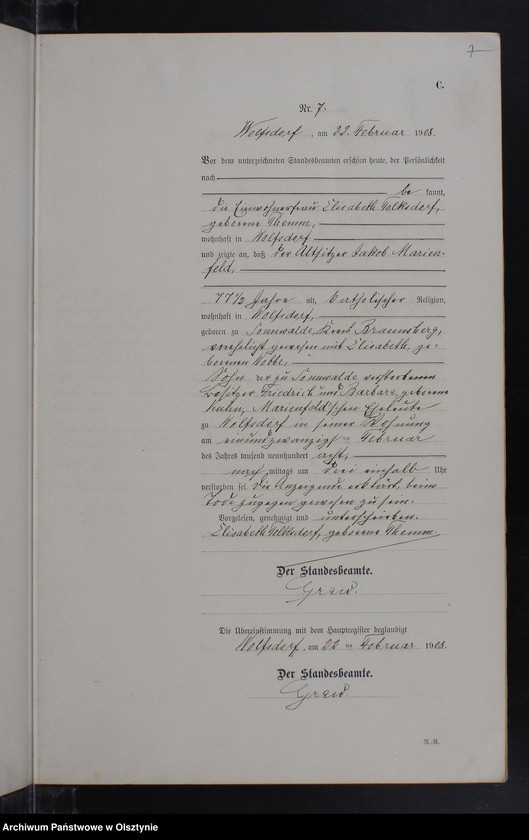 7
C.
Nr. 7.
Wolfsdorf, am 22. Februar 1908.
Vor dem unterzeichneten Standesbeamten erschien heute, der Persönlichkeit
nach
be kannt,
die Einwohnerfrau Elisabeth Volksdorf,
geborene Themm,
wohnhaft in Wolfsdorf
und zeigte an, daß der Altsitzer Jakob Marien-
feld,
77 1/2 Jahre alt, katholischer Religion,
wohnhaft in Wolfsdorf,
geboren zu Sonnwalde, Kreis Braunsberg,
verehelicht gewesen mit Elisabeth, ge-
borenen
Sohn der zu Sonnwalde verstorbenen
Besitzer Friedrich und Barbara, geborene
Kuhn, Marienfeld'schen Eheleute
zu Wolfsdorf in seiner Wohnung
am einundzwanzigsten Februar
des Jahres tausend neunhundert acht,
nach mittags um drei einhalb Uhr
verstorben sei. Die Anzeigende erklärt, beim
Tode zugegen gewesen zu sein.
Vorgelesen, genehmigt und unterschrieben.
Elisabeth Volksdorf, geborene Themm.
Der Standesbeamte.
Grew.
Die Übereinstimmung mit dem Hauptregister beglaubigt
Wolfsdorf, am 22 ten Februar 1908.
Der Standesbeamte.
Grew.
R.-R.
Archiwum Państwowe w Olsztynie